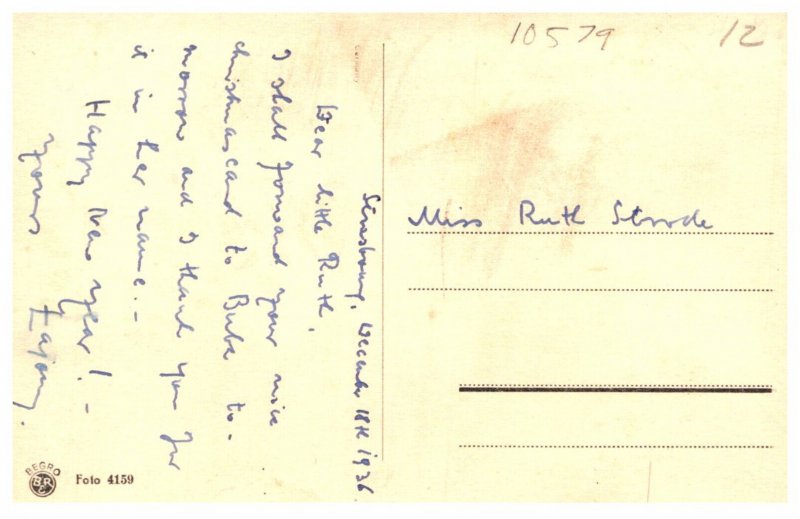 10579
12
Strasbourg, December 18th 1936
Dear little Ruth,
I shall forward your nice
christmascard to Buba to-
morrow and I thank you for
it in her name.-
Happy New year! -
yours
Miss Ruth Strode
BEGRO
Foto 4159